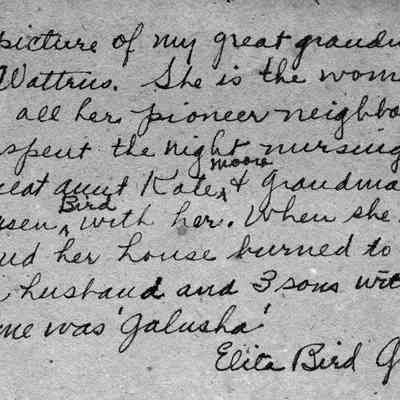 picture of my great grandm
Wattrus. She is the wom
all her pioneer neighbo
spent the night nursing
reat aunt Kate ^ moore & Grandma
usen ^ Bird with her. When she
ud her house burned to
husband and 3 sons wit
me was 'Galusha'
Elita Bird G